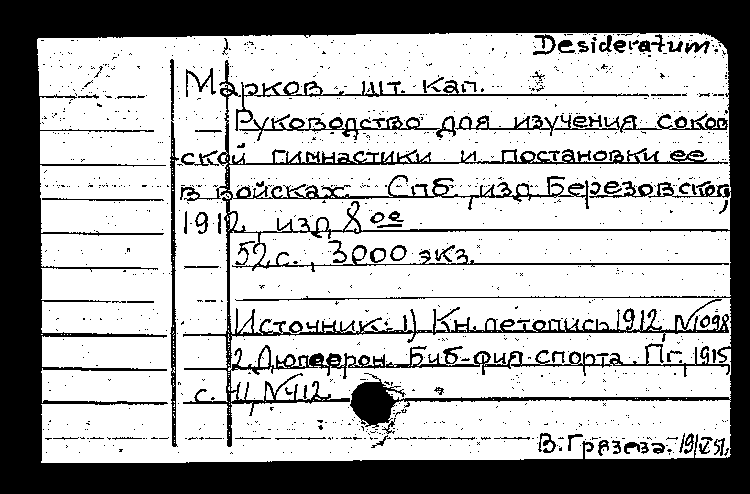 Desideratum.
Марков. шт. кап.
Руководство для изучения сокол
ской гимнастики и постановки ее
в войсках. Спб, изд. Березовского,
1912, изд. 8ое
52 с., 3000 экз.
Источник: 1) Кн. летопись 1912, №1098
2. Дюперрон. Биб-фия спорта. Пг, 1915,
с. 41, №412.
В. Грязева. 19/VI 51.